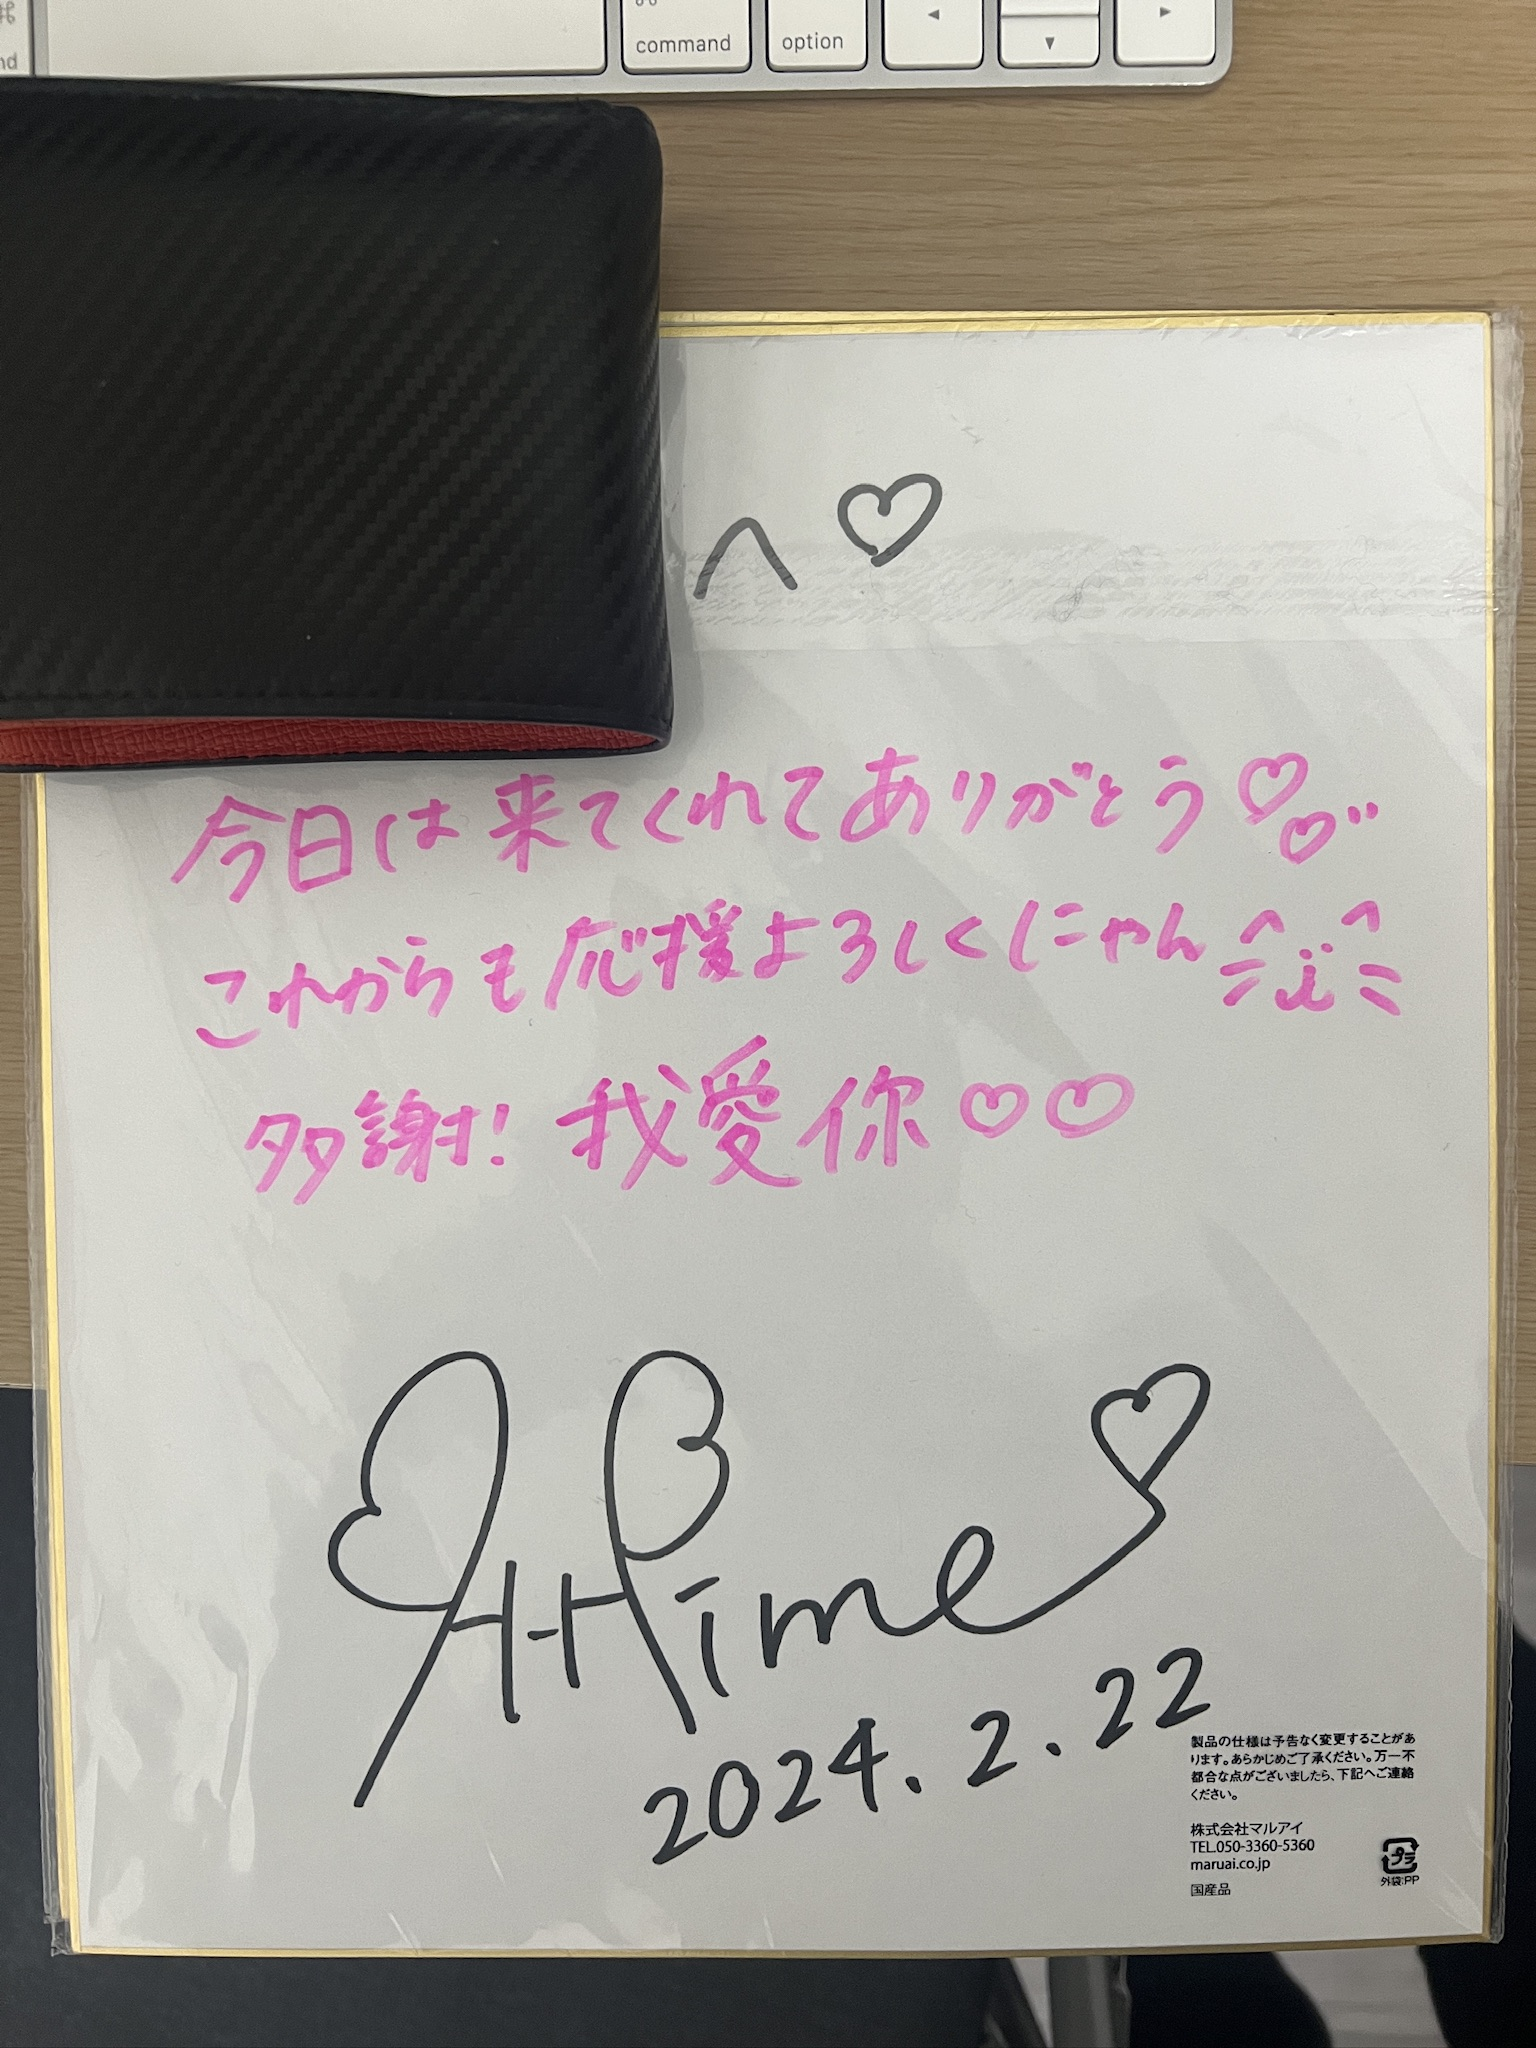 command
option
へ♡
今日は来てくれてありがとう♡♡
これからも応援よろしくにゃん
多謝！我愛你♡♡
Hime♡
2024.2.22
製品の仕様は予告なく変更することがあ
ります。あらかじめご了承ください。万一不
都合な点がございましたら、下記へご連絡
ください。
株式会社マルアイ
TEL.050-3360-5360
maruai.co.jp
国産品
プラ
外袋:PP